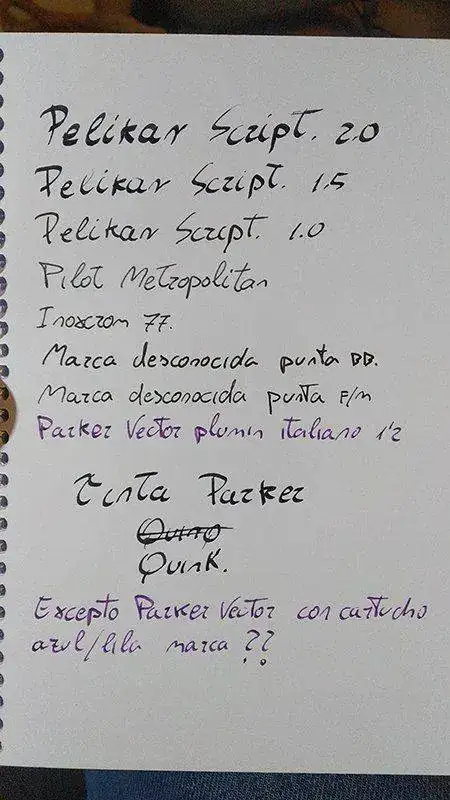 Pelikan Script. 2.0
Pelikan Script. 1.5
Pelikan Script. 1.0
Pilot Metropolitan
Inoxcrom 77.
Marca desconocida punta BB.
Marca desconocida punta F/M
Parker Vector plumin italiano 1'2
Tinta Parker
Quink.
Excepto Parker Vector con cartucho
azul/lila marca ??